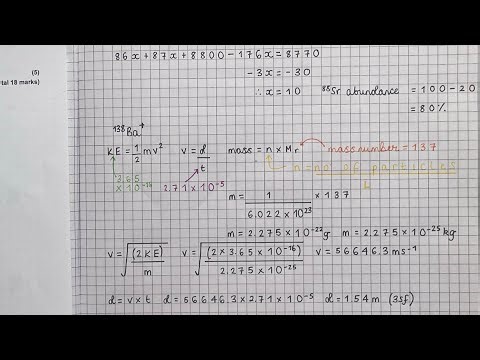 (5)
tal 18 marks)
86x+87x+8800-176x=8770
-3x=-30
∴x=10
⁸⁸Sr abundance = 100-20
= 80%
¹³⁸Ba⁺
KE=1/2 mv²
v=d/t
mass = n × Mr
mass number = 137
n = no. of particles
L
3.65 × 10⁻¹⁶
2.71×10⁻⁵
m = 1/6.022×10²³ × 137
m = 2.275×10⁻²²g
m = 2.275×10⁻²⁵kg
v=√(2KE)/m
v=√(2×3.65×10⁻¹⁶)/2.275×10⁻²⁵
v=56646.3ms⁻¹
d=v×t
d=56646.3×2.71×10⁻⁵
d=1.54m (3sf)